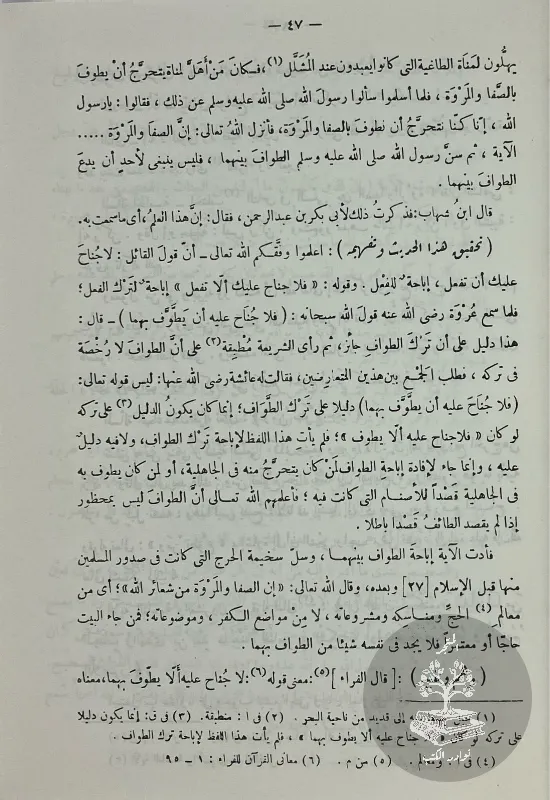 — ٤٧ —
يهلُّون لمَناة الطاغية التى كانوا يعبدون عند المُشَلَّل (١)، فكانَ مَنْ أَهَلَّ لمناة يتحرَّجُ أنْ يطوفَ
بالصَّفا والمَرْوَة ، فلما أسلموا سألوا رسولَ الله صلى الله عليه وسلم عن ذلك ، فقالوا : يارسول
الله ، إنّا كنّا نتحرَّجُ أن نطوفَ بالصفا والمَرْوَة، فأنزل اللهُ تعالى: إنَّ الصفا والمَرْوَة .....
الآية ، ثم سنَّ رسول الله صلى الله عليه وسلم الطوافَ بينهما ، فليس ينبغى لأحدٍ أن يدعَ
الطوافَ بينهما .
قال ابنُ شهاب: فذكرتُ ذلك لأبى بكر بن عبد الرحمن، فقال: إنَّ هذا العلمُ، أى ما سمعت به.
( تحقيق هذا الحديث وتفهيمه ) : اعلموا وفَّقكم الله تعالى ـ أنّ قولَ القائل : لاجُناحَ
عليك أن تفعل ، إباحةٌ للفِعْل . وقوله : « فلا جناح عليك ألّا تفعل » إباحةٌ لتَرْكِ الفعل؛
فلما سمع عُرْوَة رضى الله عنه قولَ الله سبحانه : ( فلا جُنَاح عليه أن يَطَّوَّف بهما ) ـ قال :
هذا دليل على أن تَرْكَ الطوافِ جائز، ثم رأى الشريعةَ مُطْبِقة(٢) على أنَّ الطوافَ لا رُخْصَة
فى تركه ، فطلب الجَمْعَ بين هذين المتعارضين، فقالت له عائشة رضى الله عنها: ليس قوله تعالى:
(فلا جُناحَ عليه أن يطَّوَّف بهما) دليلا على تَرْك الطَّوَاف؛ إنما كان يكونُ الدليلَ(٣) على تركه
لو كان « فلا جناح عليه ألّا يطوف »؛ فلم يأتِ هذا اللفظ لإباحة تَرْك الطواف، ولا فيه دليلٌ
عليه ، وإنما جاء لإفادة إباحةِ الطواف لمَنْ كان يتحرَّجُ منه فى الجاهلية، أو لمن كان يطوف به
فى الجاهلية قَصْدًا للأصنام التى كانت فيه ؛ فأعلمهم الله تعالى أنَّ الطوافَ ليس بمحظور
إذا لم يقصد الطائفُ قَصْدًا باطلا .
فأدت الآية إباحَةَ الطواف بينهما ، وسلّ سخيمة الحرج التى كانت فى صدور المسلمين
منها قبل الإسلام [٢٧] وبعده، وقال الله تعالى: «إن الصفا والمَرْوَة من شعائر الله»؛ أى من
معالمِ (٤) الحجِّ ومناسِكه ومشروعاته ، لا مِنْ مواضع الكفر ، وموضوعاته؛ فمن جاء البيت
حاجًا أو معتمرًا فلا يجد فى نفسه شيئا من الطواف بهما .
: [ قال الفراء ](٥): معنى قوله(٦): لا جُناح عليه ألّا يطّوف بهما، معناه
(١) إلى قديد من ناحية البحر . (٢) فى ا : منطبقة. (٣) فى ق: إنما يكون دليلا
على تركه لو كان « فلا جناح عليه ألا يطوف بهما » ، فلم يأت هذا اللفظ لإباحة ترك الطواف .
(٤) فى ا : ومعالم . (٥) من م . (٦) معانى القرآن للفراء : ١ ـ ٩٥
نوادر الكتب